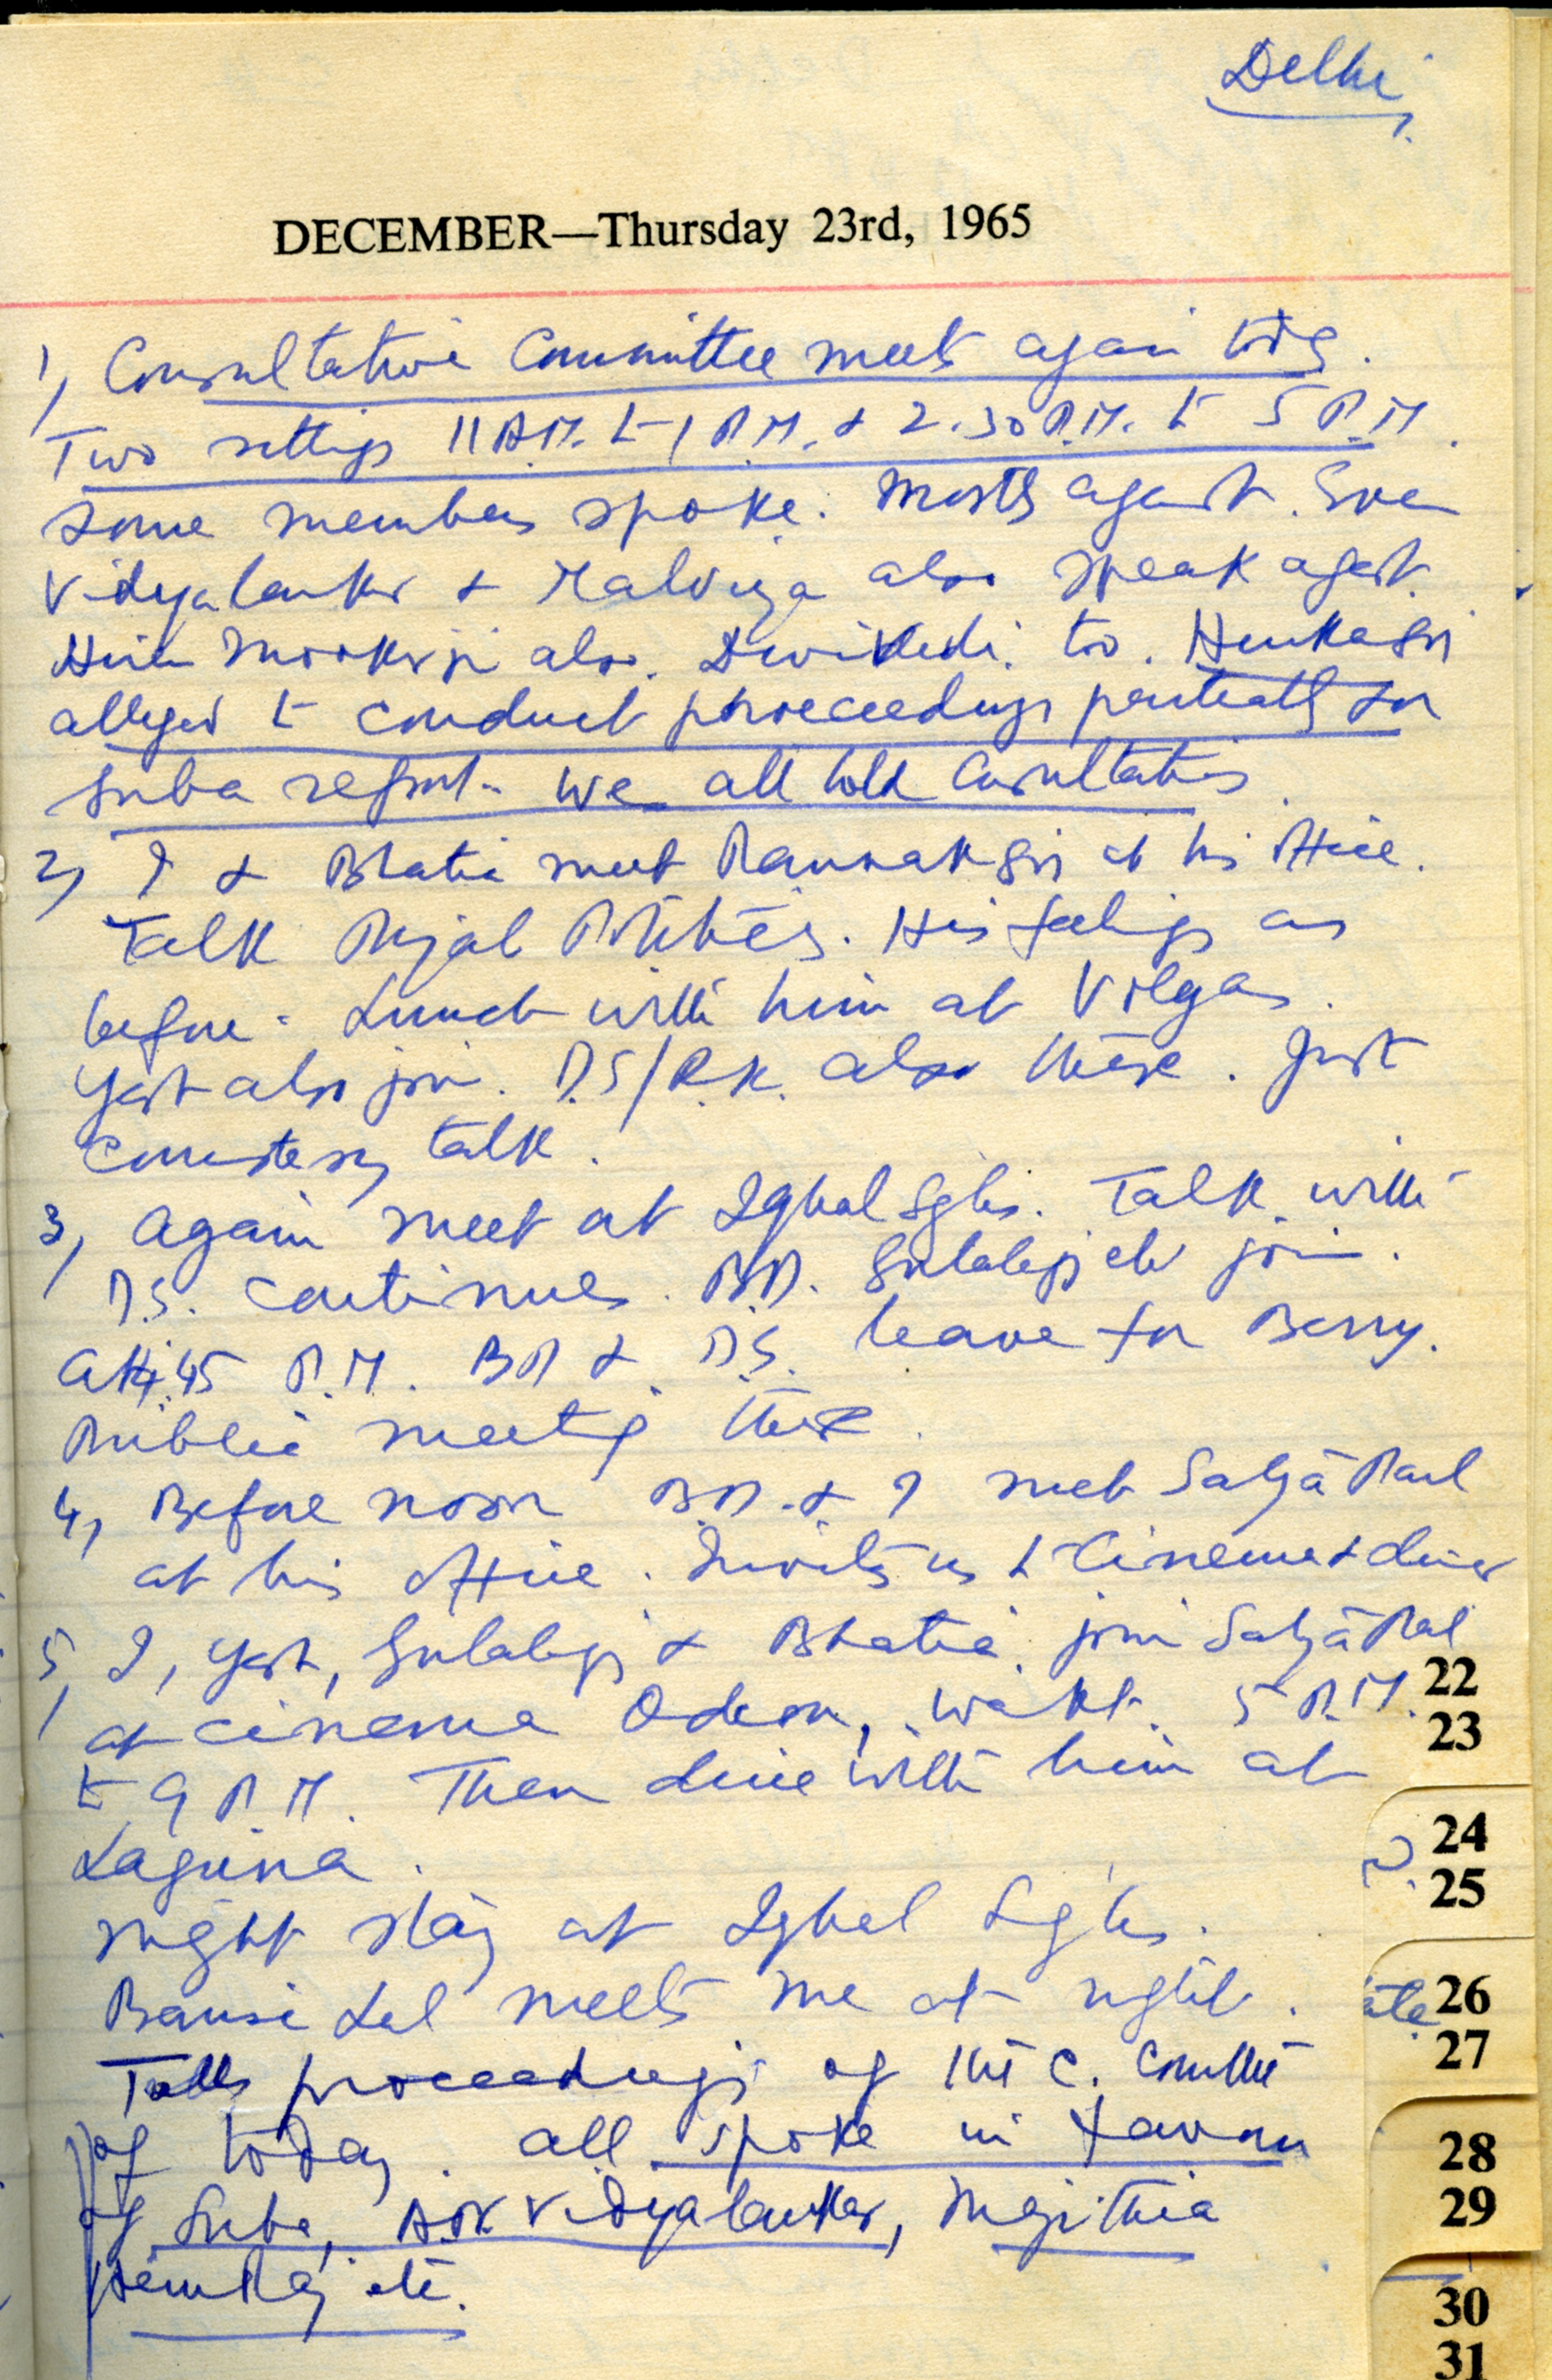 Delhi
DECEMBER—Thursday 23rd, 1965
1, Consultative Committee meets again
Two sittings 11 A.M. to 1 P.M. & 2.30 P.M. to 5 P.M.
Some members spoke. Mostly against. Even
Vidyalankar & Malviya also speak agst.
Hiren Mookerji also. Dwivedi too. Hukam Sgh
alleged to conduct proceedings partially for
Suba report. We all hold Consultations.
2, I & Bhatia meet at his office.
Talk Punjab Politics. His feelings as
before. Lunch with him at Volgas.
Yash also join. D.S/R.K. also there. Just
Courtesy talk.
3, Again meet at Iqbal Sghs. Talk with
D.S. continues. B.D. Gulabji etc join.
At 4.45 P.M. BD & D.S. leave for Beny.
Public meeting there.
4, Before noon B.D. & I meet Satya Paul
at his office. Invites us to Cinema & dinner
5, I, Yash, Gulabji & Bhatia join Satya Pal
at cinema Odeon, Wakt. 5 P.M.
to 9 P.M. Then dine with him at
Laguna.
Night stay at Iqbal Sghs.
Bansi Lal meets me at night.
Tells proceedings of the C. Comttee
of today. All spoke in favour
of Suba, Vidyalankar, Majithia
Hem Raj etc.
22
23
24
25
26
27
28
29
30
31